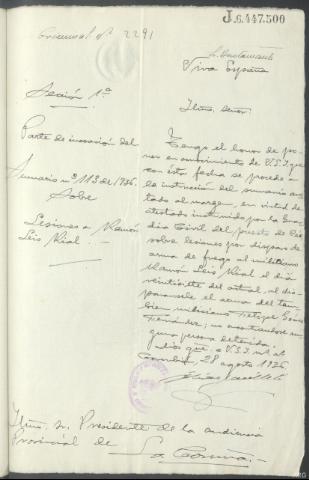 J.6.447.500
Criminal nº 2291
S. Bustamante
Viva España
Sección 1ª
Iltmo. Señor:
Parte de incoación del
Sumario nº 113 de 1936.
Sobre
Lesiones a Ramón
Leis Rial.
Tengo el honor de po-
ner en conocimiento de V.S.I. que
con ésta fecha se procede a
la instrucción del sumario ano-
tado al margen, en virtud de
atestado instruido por la Guar-
dia Civil del puesto de
sobre lesiones por disparo de
arma de fuego al miliciano
Ramón Leis Rial el día
veintisiete del actual, al dis-
parársele el arma del tam-
bien miliciano Felipe
Fernández; no encontrándose nin-
guna persona detenida.
Dios gue. a V.S.I. ms. as.
28 agosto 1936.
Iltmo. Sr. Presidente de la Audiencia
Provincial de
La Coruña.-